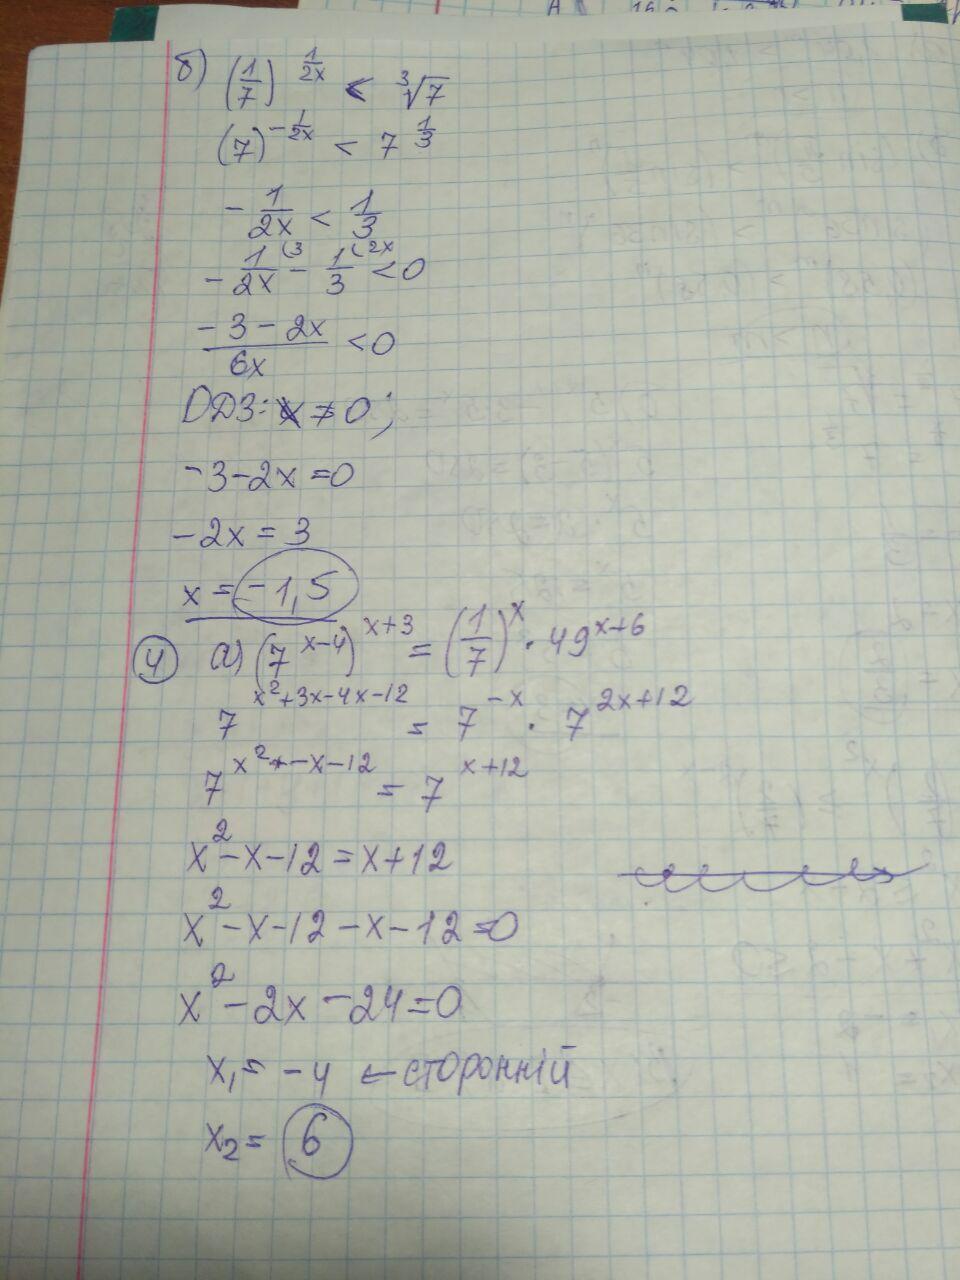 б) (1/7)^(1/2x) < ∛7
(7)^(-1/2x) < 7^(1/3)
- 1/2x < 1/3
- 1/2x (3 - 1/3 (2x < 0
(-3 - 2x)/6x < 0
ОДЗ: x ≠ 0;
-3-2x=0
-2x = 3
x = -1,5
4 а) (7^(x-4))^(x+3) = (1/7)^x · 49^(x+6)
7^(x²+3x-4x-12) = 7^(-x) · 7^(2x+12)
7^(x²-x-12) = 7^(x+12)
x²-x-12=x+12
x²-x-12-x-12=0
x²-2x-24=0
x₁= -4 ← сторонній
x₂= 6